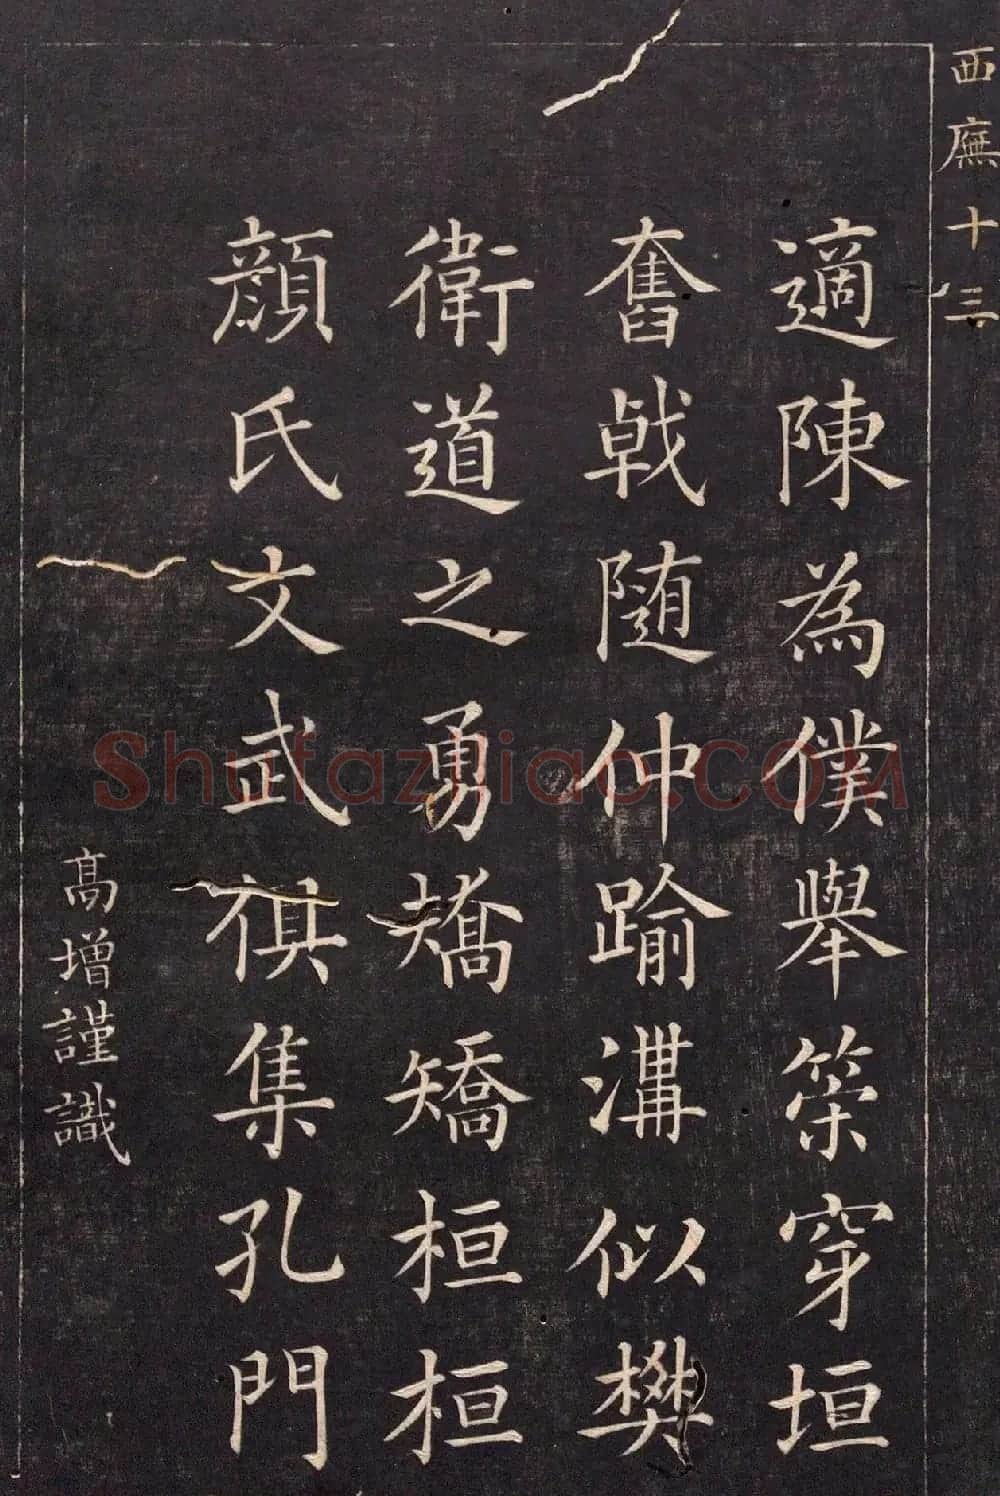 西廡十三
適陳為僕舉策穿垣
奮戟隨仲踰溝似樊
衛道之勇矯矯桓桓
顏氏文武俱集孔門
高增謹識
Shufaziliao.COM